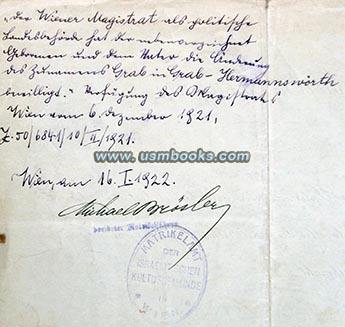 "Der Wiener Magistrat als politische
Landesbehörde hat der nebenverzeichnet
Geborenen und dem Vater die Änderung
des Zunamens Grab in Grab-Hermannswörth
bewilligt." Verfügung des Magistrats
Wien vom 6. Dezember 1921,
Z. 50/6841/10/II/1921.
www.usmbooks.com
Wien, am 16. I. 1922.
Michael
beeideter
MATRIKELAMT
DER
ISRAELITISCHEN
KULTUSGEMEINDE
IN
WIEN